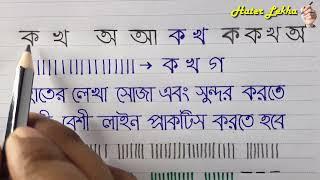 Hater Lekha
ক খ অ আ ক খ ক ক খ অ
→ ক খ গ
হাতের লেখা সোজা এবং সুন্দর করতে
বেশী লাইন প্রাকটিস করতে হবে